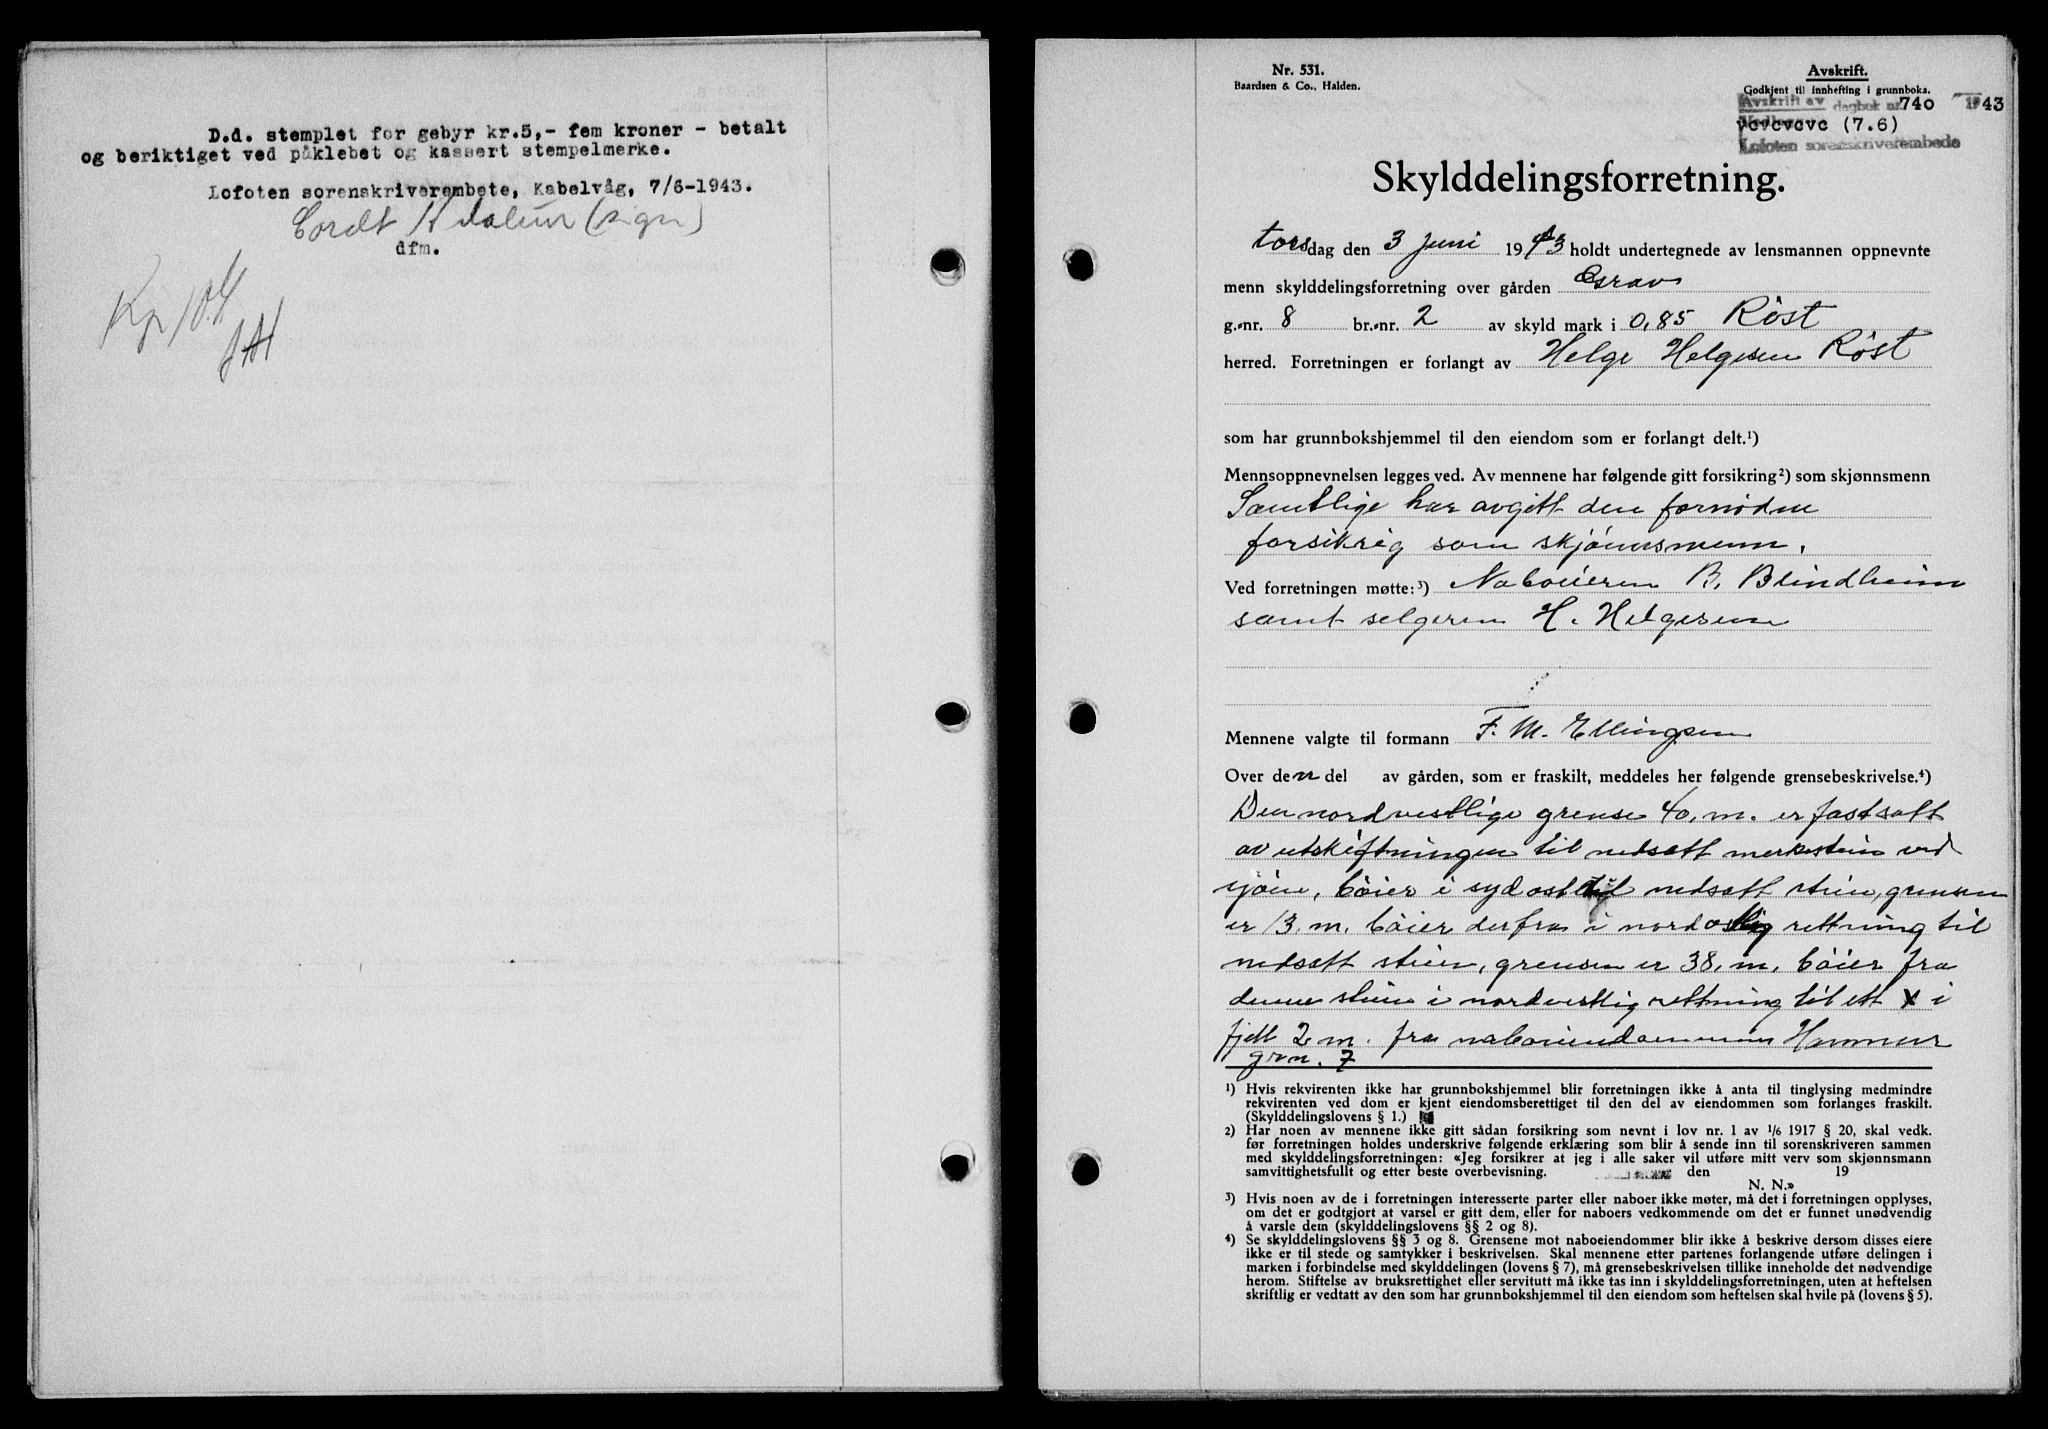 D.d. stemplet for gebyr kr.5,- fem kroner - betalt
og beriktiget ved påklebet og kassert stempelmerke.
Lofoten sorenskriverembete, Kabelvåg, 7/6-1943.
(sign)
dfm.
Nr. 531.
Baardsen & Co., Halden.
Avskrift.
Godkjent til innhefting i grunnboka.
Avskrift av dagbok nr. 740 1943
vevcvcvc (7.6)
Lofoten sorenskriverembede
Skylddelingsforretning.
tors dag den 3 juni 1943 holdt undertegnede av lensmannen oppnevnte
menn skylddelingsforretning over gården Grav
g.-nr. 8 br.-nr. 2 av skyld mark i 0,85 Röst
herred. Forretningen er forlangt av Helge Helgesen Röst
som har grunnbokshjemmel til den eiendom som er forlangt delt.¹)
Mennsoppnevnelsen legges ved. Av mennene har følgende gitt forsikring²) som skjønnsmenn
Samtlige har avgitt den fornødne
forsikrig som skjönnsmenn.
Ved forretningen møtte:³) Naboeieren B. Blindheim
samt selgeren H. Helgesen
Mennene valgte til formann F. M. Ellingsen
Over den del av gården, som er fraskilt, meddeles her følgende grensebeskrivelse.⁴)
Den nordvestlige grense 40, m. er fastsatt
av utskiftningen til nedsatt merkestein ved
sjöen, böier i sydost til nedsatt stein, grensen
er 13. m. böier derfra i nordostlig rettning til
nedsatt stein, grensen er 38, m. böier fra
denne stein i nordvestlig rettning til ett x i
fjell 2 m. fra naboeiendommen Hammer
grn. 7
1) Hvis rekvirenten ikke har grunnbokshjemmel blir forretningen ikke å anta til tinglysing medmindre
rekvirenten ved dom er kjent eiendomsberettiget til den del av eiendommen som forlanges fraskilt.
(Skylddelingslovens § 1.)
2) Har noen av mennene ikke gitt sådan forsikring som nevnt i lov nr. 1 av 1/6 1917 § 20, skal vedk.
før forretningen holdes underskrive følgende erklæring som blir å sende inn til sorenskriveren sammen
med skylddelingsforretningen: «Jeg forsikrer at jeg i alle saker vil utføre mitt verv som skjønnsmann
samvittighetsfullt og etter beste overbevisning. den 19
N. N.»
3) Hvis noen av de i forretningen interesserte parter eller naboer ikke møter, må det i forretningen opplyses,
om det er godtgjort at varsel er gitt dem, eller for naboers vedkommende om det er funnet unødvendig
å varsle dem (skylddelingslovens §§ 2 og 8).
4) Se skylddelingslovens §§ 3 og 8. Grensene mot naboeiendommer blir ikke å beskrive dersom disses eiere
ikke er til stede og samtykker i beskrivelsen. Skal mennene etter partenes forlangende utføre delingen i
marken i forbindelse med skylddelingen (lovens § 7), må grensebeskrivelsen tillike inneholde det nødvendige
herom. Stiftelse av bruksrettighet eller servitutt må ikke tas inn i skylddelingsforretningen, uten at heftelsen
skriftlig er vedtatt av den som har grunnbokshjemmel til den eiendom som heftelsen skal hvile på (lovens § 5).